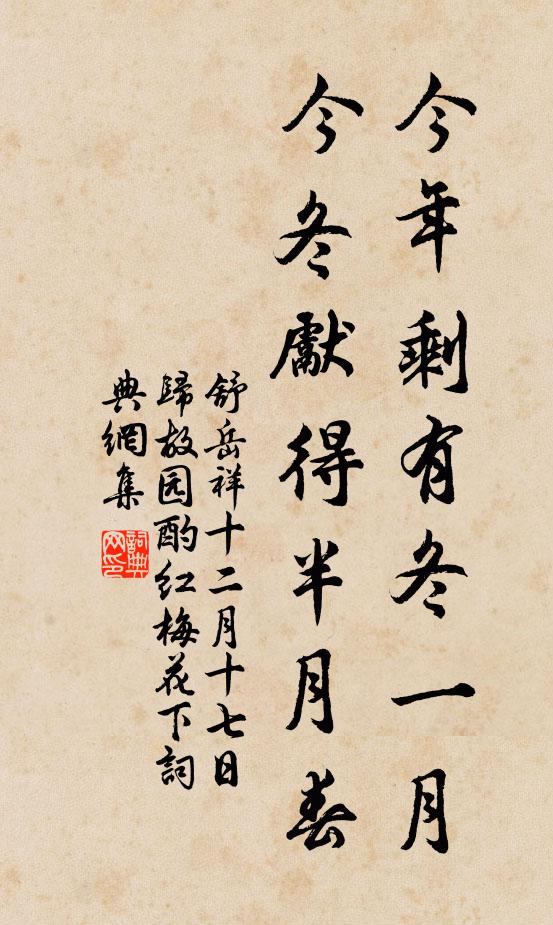 今年剩有冬一月
今冬獻得半月春
舒岳祥十二月十七日
歸故园酌红梅花下詞
典網集
詞典
网印